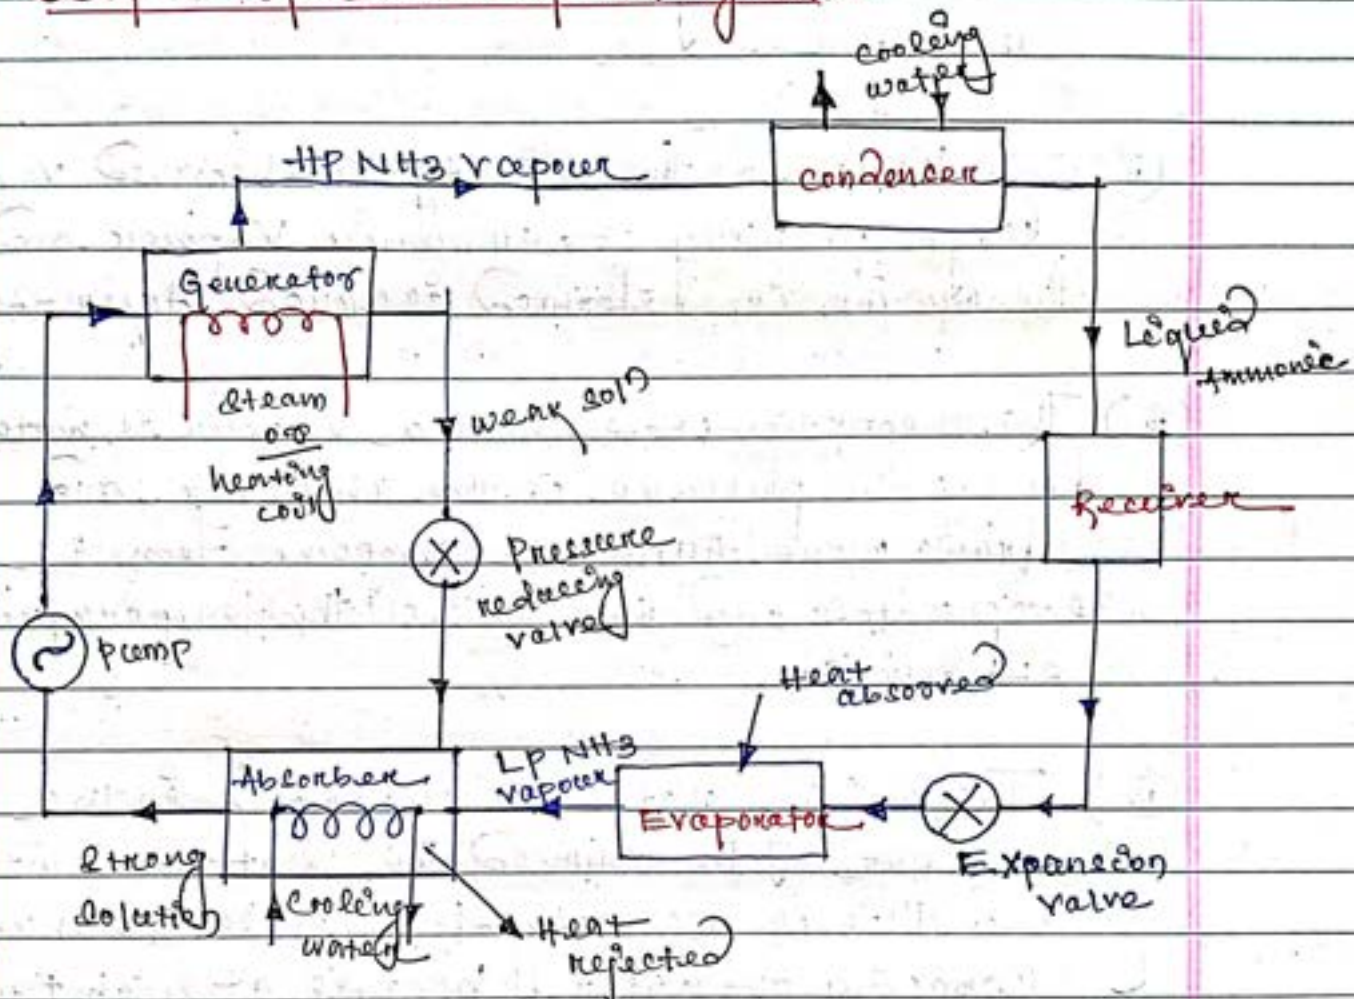 cooling
water
HP NH3 vapour
condenser
Generator
Steam
or
heating
coil
weak soln
Liquid
Ammonic
Receiver
Pressure
reducing
valve
pump
Heat
absorved
LP NH3
vapour
Absorber
Evaporator
Expansion
valve
Strong
Solution
Cooling
water
Heat
rejected